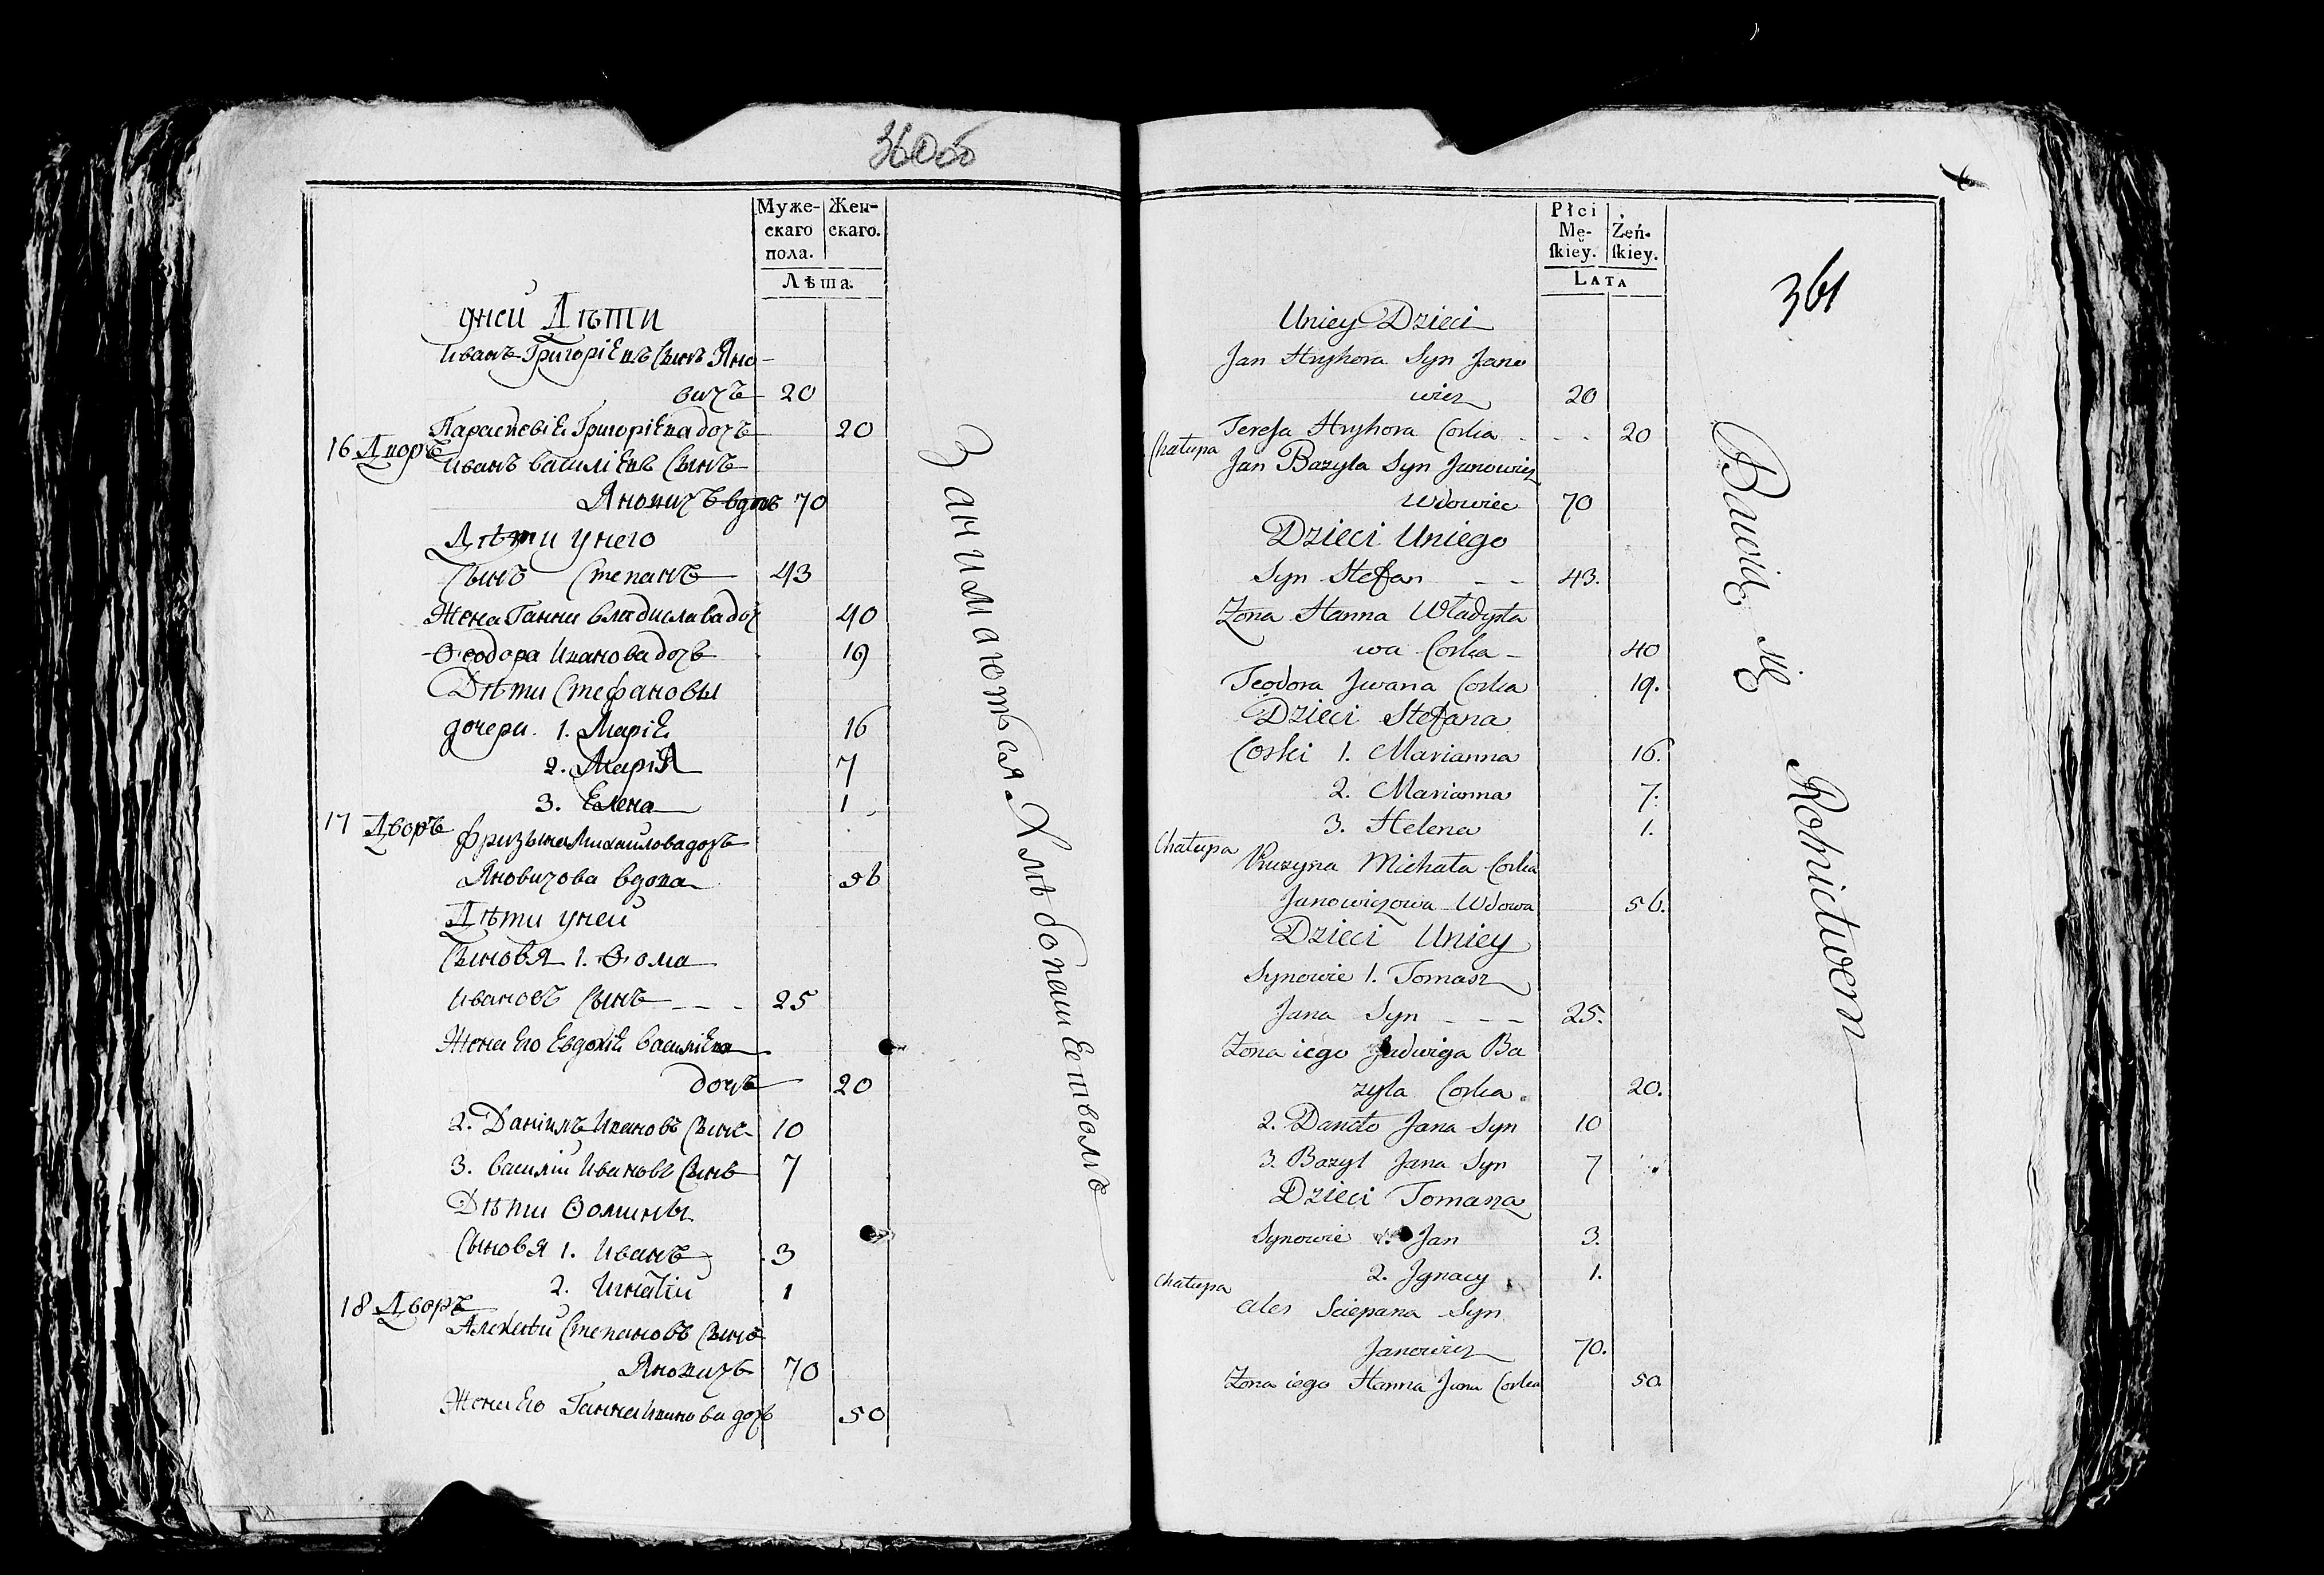 360об
Муже-
скаго
пола.
Жен-
скаго.
Лѣта.
уней Дѣти
Иванъ Григоріевъ Сынъ Яно-
вичъ 20
Параскевія Григоріева дочь 20
16 Дворъ
Иванъ Василіевъ Сынъ
Яновичъ вдовъ 70
Дѣти унего
Сынъ Степанъ 43
Жена Ганна Владислава доч 40
Ѳеодора Иванова дочь 19
Дѣти Стефановы
дочери. 1. Марія 16
2. Марія 7
3. Елена 1
17 Дворъ
Михайлова дочь
Яновичова вдова 56
Дѣти уней
Сыновя 1. Ѳома
Ивановъ Сынъ - - - 25
Жена Его Евдокія Василіева
дочь 20
2. Даніилъ Ивановъ Сынъ 10
3. Василій Ивановъ Сынъ 7
Дѣти Ѳомины
Сыновя 1. Иванъ 3
2. Игнатій 1
18 Дворъ
Алексѣй Степановъ Сынъ
Яновичъ 70
Жена Его Ганна Иванова дочь 50
Занимаются Хлѣбопашествомъ
361
Płci
Mę-
skiey.
Żeń-
skiey.
LATA
Uniey Dzieci
Jan Hryhora Syn Jano
wicz 20
Teresa Hryhora Corka - - - 20
Chałupa
Jan Bazyla Syn Janowicz
Wdowiec 70
Dzieci Uniego
Syn Stefan - - 43.
Żona Hanna Władysła
wa Corka - 40
Teodora Jwana Corka 19.
Dzieci Stefana
Corki 1. Marianna 16.
2. Marianna 7.
3. Helena 1.
Chałupa
Michała Corka
Janowiczowa Wdowa 56.
Dzieci Uniey
Synowie 1. Tomasz
Jana Syn - - - 25.
Żona iego Jadwiga Ba
zyla Corka. 20.
2. Daniło Jana Syn 10
3. Bazyl Jana Syn 7
Dzieci Tomasza
Synowie 1. Jan 3.
2. Jgnacy 1.
Chałupa
Ales Sciepana Syn
Janowicz 70.
Żona iego Hanna Jana Corka 50.
Bawią się Rolnictwem